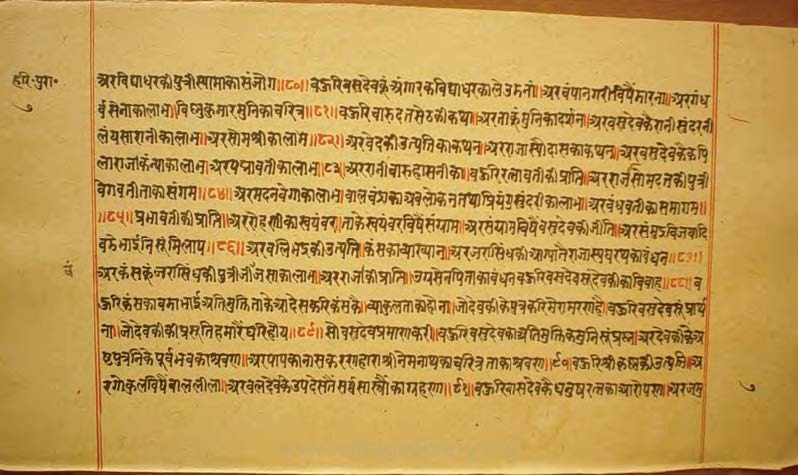 हरि॰पुरा॰
७
अरविद्याधरकी पुत्री स्यामाका संजोग॥८०॥ बऊरिवसदेवकूं अंगारकविद्याधरका ले उडनां॥ अरचंपानगरीविषैंडारना॥ अरगंध
र्वसेनाकालाभ॥ विष्णुकुमारमुनिकाचरित्र॥८१॥ बऊरिचारुदतसेठकीकथा॥ अरताकूंमुनिकादर्शन॥ अरवसुदेवकैरानीसुंदरनी
लंयसारानीकालाभ॥ अरसोमश्रीकालाभ॥८२॥ अरवेदकीउत्पतिकाकथन॥ अरराजासौदासकाकथन॥ अरवसदेवकैकपि
लाराजाकन्याकालाभ॥ अरपद्मावतीकालाभ॥८३॥ अररानीचारुहासनीका॥ बऊरिरत्नावतीकीप्राप्ति॥ अरराजासोमदत्तकीपुत्री
वेगवतीताकासंगम॥८४॥ अरमदनवेगाकालाभ॥ बालचंद्राकाअवलोकनतथाप्रियंगुसंदरीकालाभ॥ अरबंधवतीकासमागम॥
॥८५॥ प्रभावतीकीप्राप्ति॥ अररोहणीकास्वयंवर॥ ताकेस्वयंवरविषैंसंग्राम॥ अरसंग्रामविषैंवसदेवकीजीति॥ अरसमुद्रविजयादि
बडेभाईनिसूंमिलाप॥८६॥ अरबलिभद्रकीउत्पति॥ कंसकाव्याख्यान॥ अरजरासिंधकीआग्यातैंराजास्यंघरथकाबंधन॥८७॥
अरकंसकूंजरासिंधकीपुत्रीजीवंजसाकालाभ॥ अरराजकीप्राप्ति॥ उग्रसेनपिताकाबंधनबऊरिवसदेवसूंदेवकीकाविवाह॥८८॥ब
ऊरिकंसकाबडाभाईअतिमुक्तिताकेआदेसकरिकंसकैव्याकुलताकाहोना॥ जोदेवकीकेपुत्रकरिमेरामरणहै॥ बऊरिवसदेवसूंप्रार्थ
ना॥ जोदेवकीकीप्रसूतिहमारेंघरिहोय॥८९॥ सोवसदेवप्रमाणकरी॥ बऊरिवसदेवकाअतिमुक्तिकमुनिसूंप्रश्न॥ अरदेवकीकेअ
ष्टपुत्रनिकेपूर्वभवकाश्रवण॥ अरपापकानासकरणहाराश्रीनेमनाथकाचरित्रताकाश्रवण॥९०॥ बऊरिश्रीकृष्णकीउत्पत्ति॥अ
रगोकुलविषैंबाललीला॥ अरबलदेवकेउपदेसतैंसर्वसास्त्रोंकाग्रहण॥९१॥ बऊरिवासदेवकैधनुषरत्नकाआरोपण॥ अरजमु
वं
७